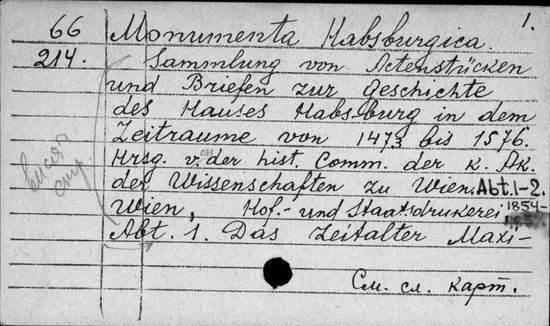 1.
66 Monumenta Habsburgica.
214. Sammlung von Actenstücken
und Briefen zur Geschichte
des Hauses Habs-burg in dem
Zeitraume von 1473 bis 1576.
Hrsg. v. der hist. Comm. der K. Ak.
der Wissenschaften zu Wien. Abt. 1-2.
Wien, Hof.- und Staatsdrukerei 1854-
Abt. 1. Das Zeitalter Maxi-
См. сл. карт.